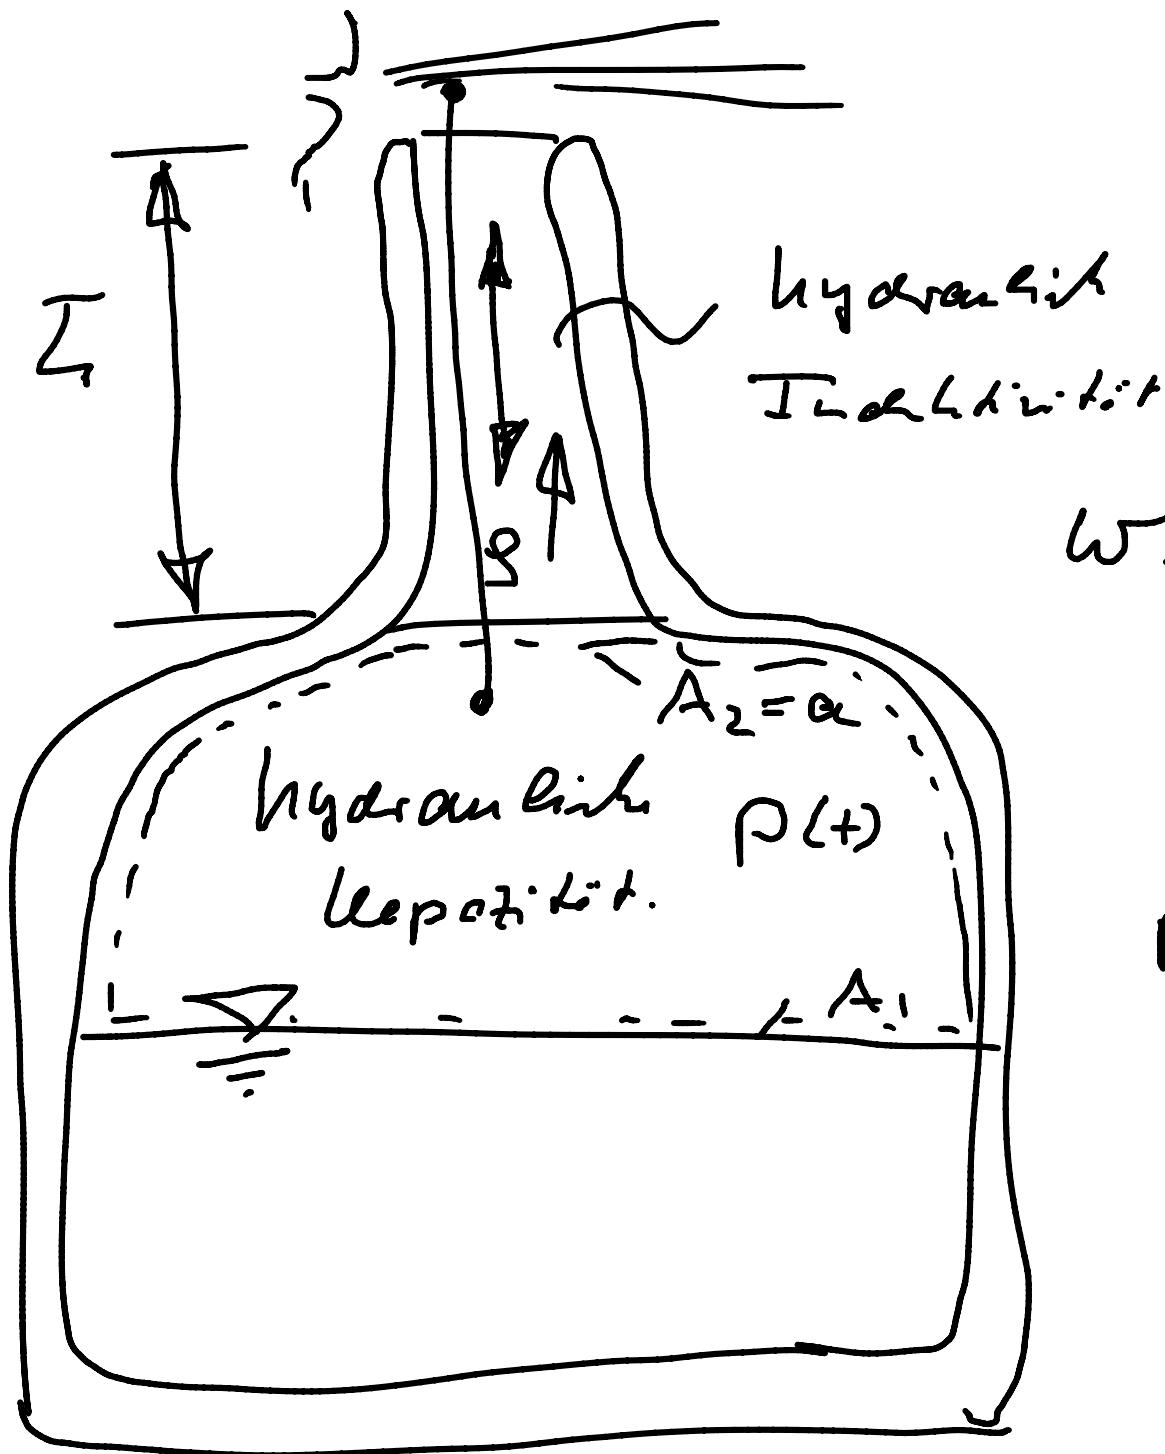 hydraulisch
Induktivität
L
ϱ
A₂ = a
hydraulische
Kapazität.
p(t)
A₁